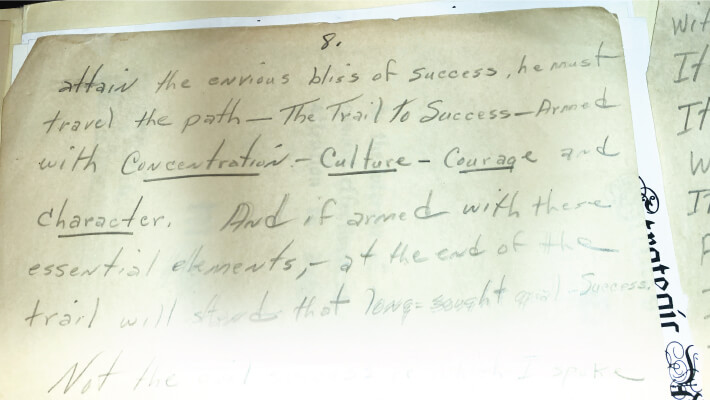 8.
attain the envious bliss of success, he must
travel the path — The Trail To Success — Armed
with Concentration. — Culture — Courage and
Character. And if armed with these
essential elements, — at the end of the
trail will stands that long-sought goal — Success.
Not the I spoke
With
It
It
W